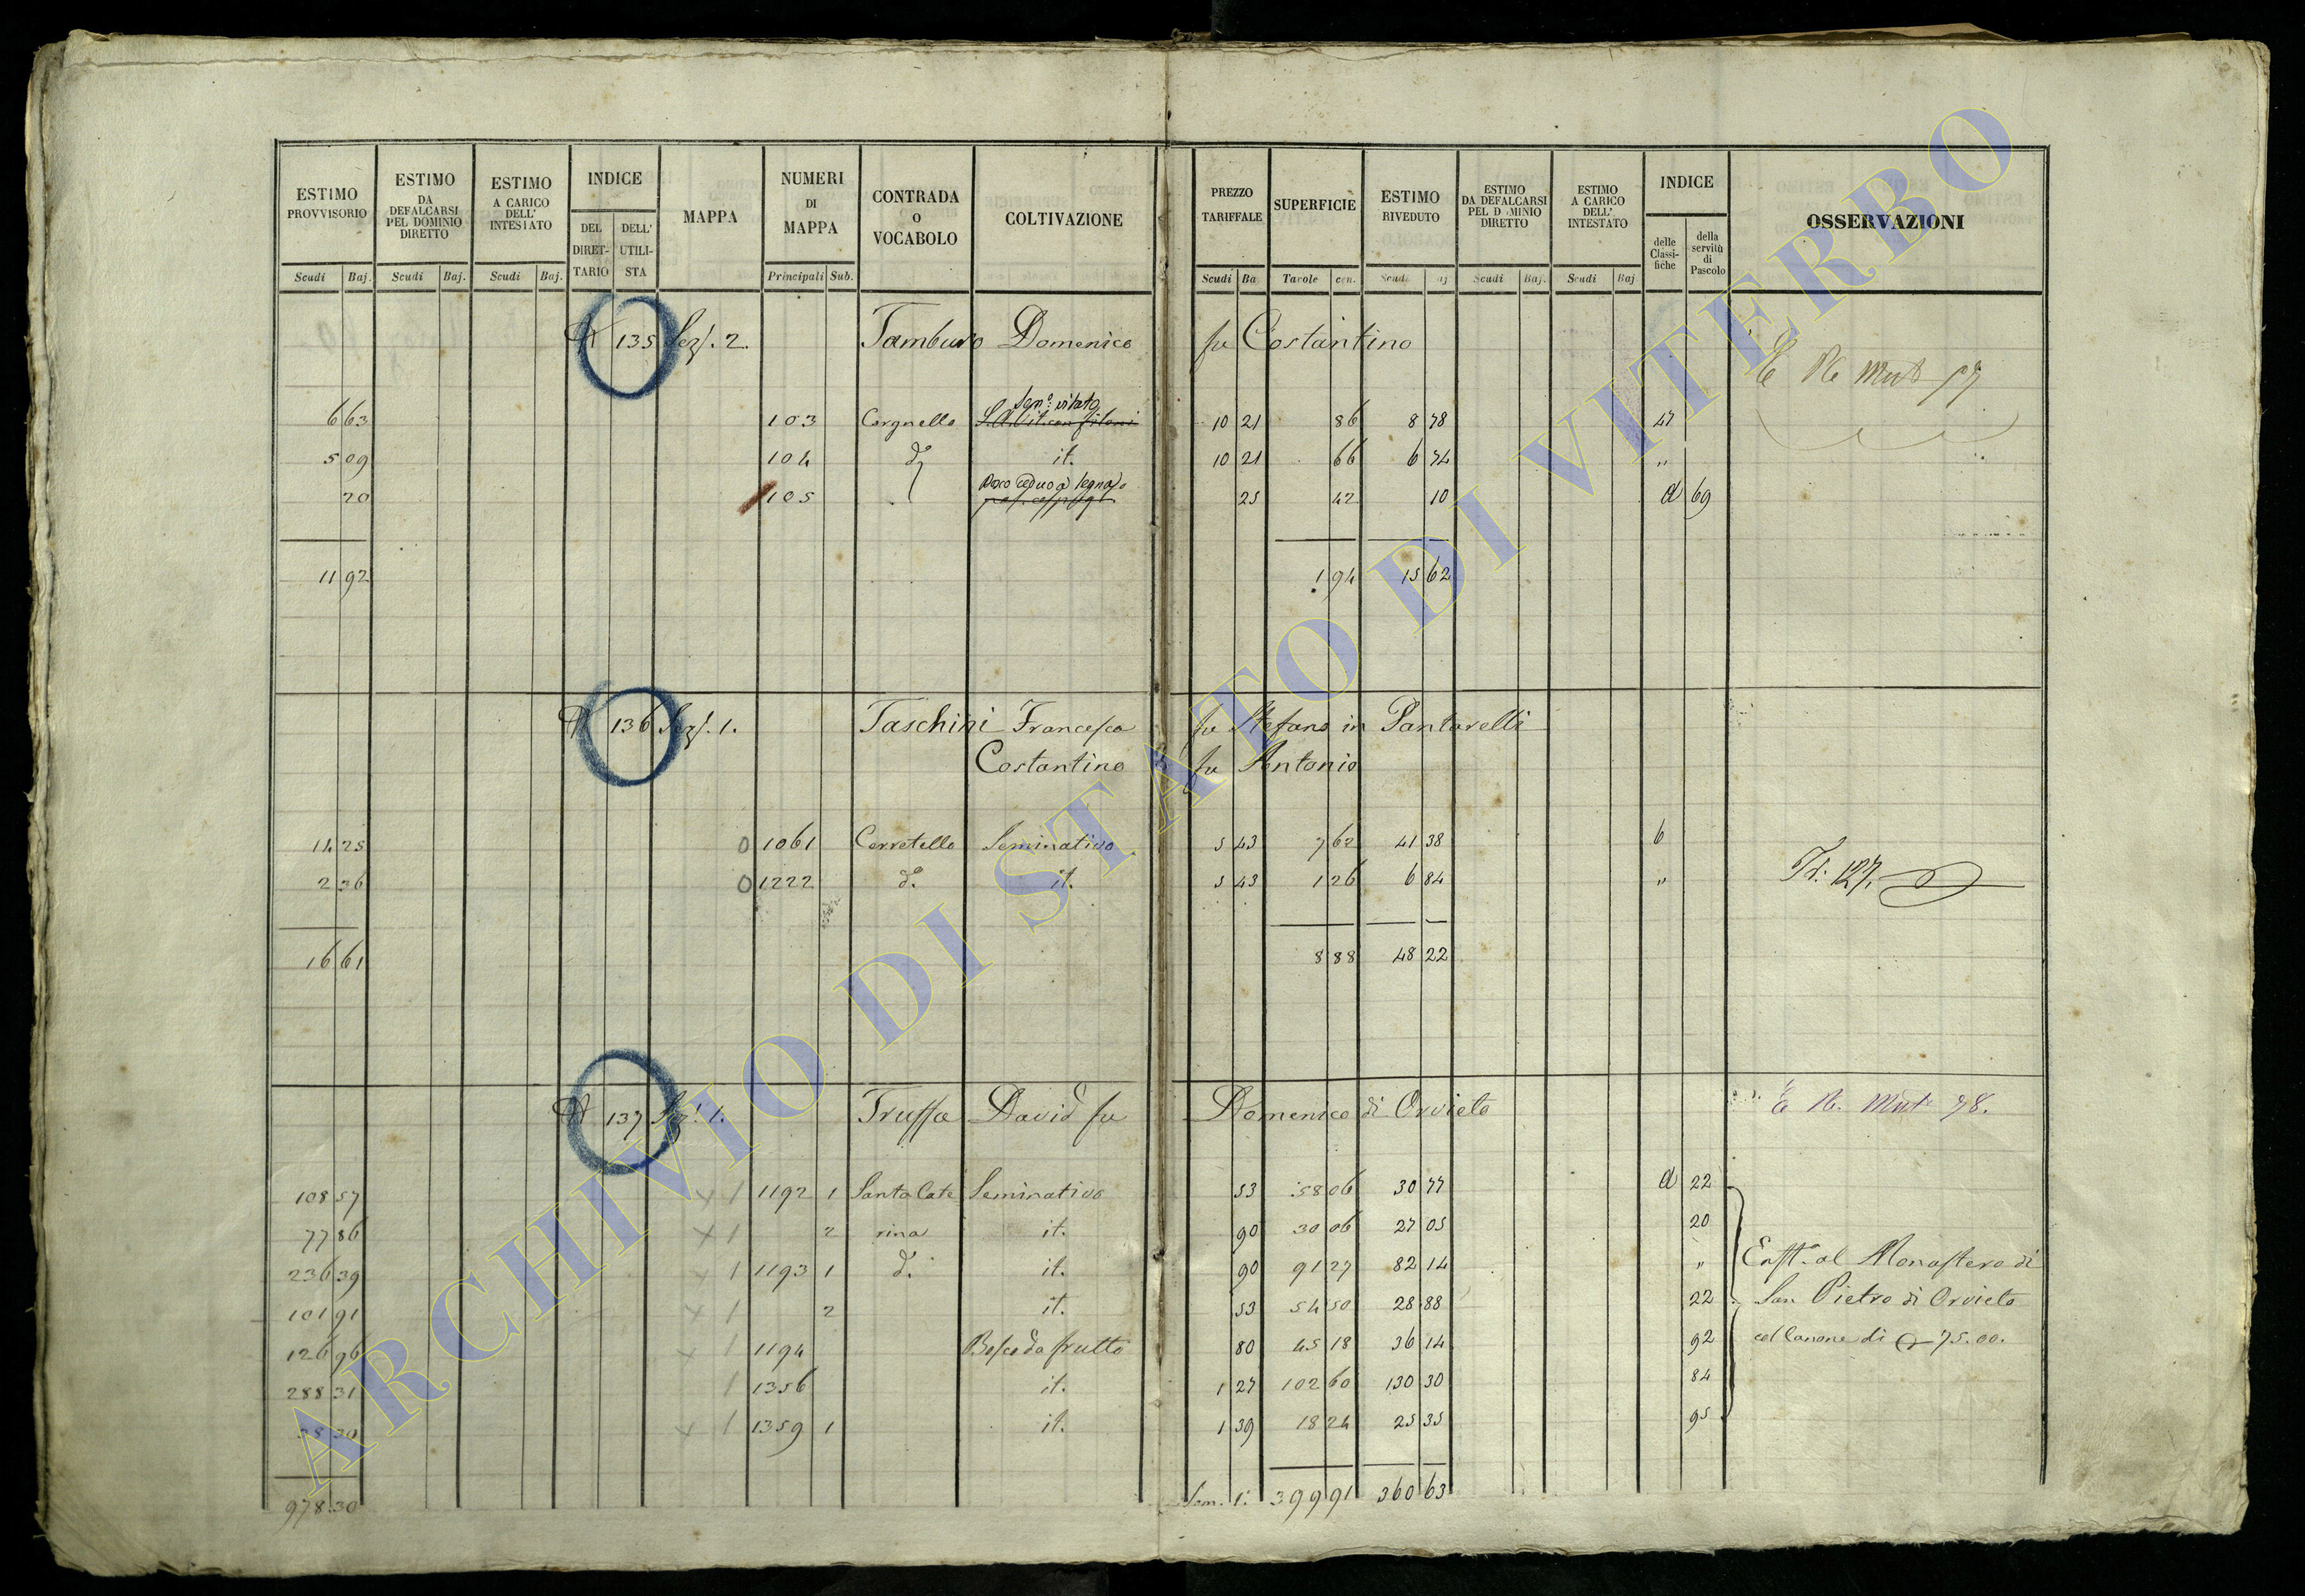 ESTIMO PROVVISORIO | ESTIMO DA DEFALCARSI PEL DOMINIO DIRETTO | ESTIMO A CARICO DELL' INTESTATO | INDICE DEL DIRETTARIO | DELL' UTILISTA | MAPPA | NUMERI DI MAPPA | CONTRADA O VOCABOLO | COLTIVAZIONE | PREZZO TARIFFALE | SUPERFICIE | ESTIMO RIVEDUTO | ESTIMO DA DEFALCARSI PEL D MINIO DIRETTO | ESTIMO A CARICO DELL' INTESTATO | INDICE delle Classifiche | della servitù di Pascolo | OSSERVAZIONI
Scudi Baj. | Scudi Baj. | Scudi Baj. | Principali Sub. | Scudi Ba | Tavole cen. | Scudi aj | Scudi Baj. | Scudi Baj
135 Sez. 2. Tamburo Domenico fu Costantino
E Re Mut 77
Semo. vitato
6 63 103 Corgnello S.A.Vit. con filoni 10 21 86 8 78 47
5 09 104 do it. 10 21 66 6 74 "
Bosco ceduo a legna do
20 105 25 42 10 d 69
11 92 1 94 15 62
136 Sez. 1. Taschini Francesca fu Stefano in Pantarelli
Costantino fu Antonio
14 25 0 1061 Cerretello Seminativo 5 43 7 62 41 38 6
2 36 0 1222 do. it. 5 43 1 26 6 84 "
Id: 127.
16 61 8 88 48 22
137 Sez. 1. Truffa David fu Domenico di Orvieto
E Re. Mut 78.
108 57 1192 1 Santa Cate Seminativo 53 58 06 30 77 d 22
77 86 2 rina it. 90 30 06 27 05 20
236 39 1193 1 do. it. 90 91 27 82 14 "
Enfta. al Monastero di
101 91 2 it. 53 54 50 28 88 22
San Pietro di Orvieto
126 96 1194 Bosco da frutto 80 45 18 36 14 92
col Canone di 75.00.
288 31 1356 it. 1 27 102 60 130 30 84
38 30 1359 1 it. 1 39 18 24 25 35 95
978 30 Som. 1: 399 91 360 63
ARCHIVIO DI STATO DI VITERBO